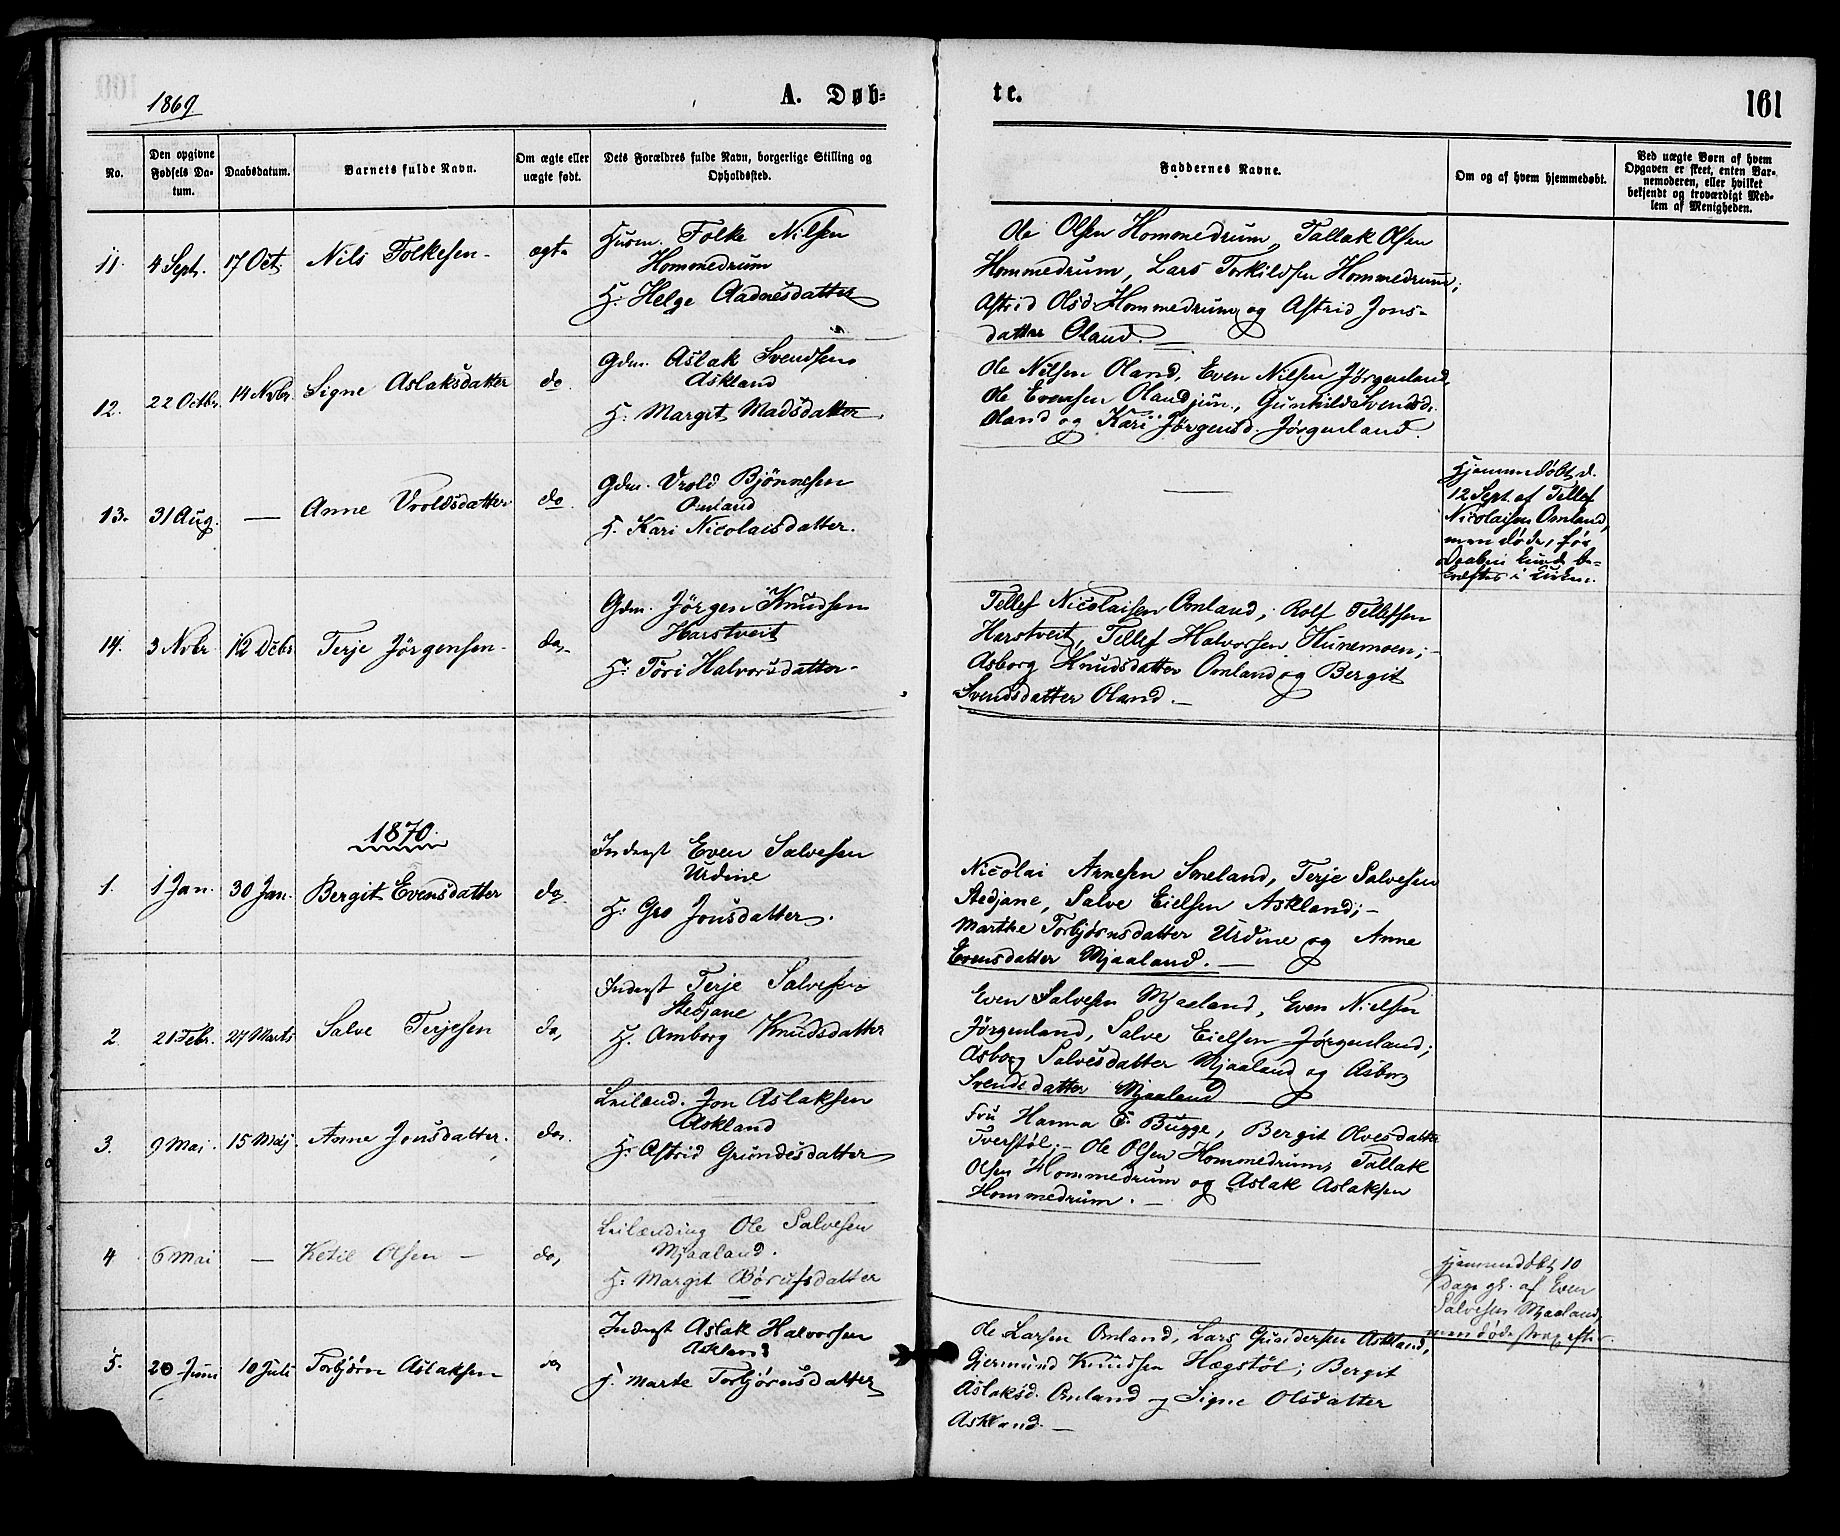 1869
A. Døb-
te.
161
No.
Den opgivne Fødsels Da-tum.
Daabsdatum.
Barnets fulde Navn.
Om ægte eller uægte født.
Dets Forældres fulde Navn, borgerlige Stilling og Opholdssted.
Faddernes Navne.
Om og af hvem hjemmedøbt.
Ved uægte Børn af hvem Opgaven er skeet, enten Bar-nemoderen, eller hvilket bekjendt og troværdigt Med-lem af Menigheden.
11. 4 Sept. 17 Oct. Nils Folkesen - ægte
Husm. Folke Nilsen
Hommedrum
H: Helge Aadnesdatter
Ole Olsen Hommedrum, Tallak Olsen
Hommedrum, Lars Torkildsen Hommedrum;
Astrid Olsd. Hommedrum og Astrid Jons-
datter Oland. -
12. 22 Octbr. 14 Nvbr. Signe Aslaksdatter do
Gdm. Aslak Svendsen
Askland
H: Margit Madsdatter.
Ole Nilsen Oland, Even Nilsen Jørgenland,
Ole Evensen Oland jun., Gunhild Svendsd.
Oland og Kari Jørgensd. Jørgenland.
13. 31 Aug. — Anne Vroldsdatter do
Gdm. Vrold Bjönnesen
Omland
H. Kari Nicolaisdatter.
—
Hjemmedöbt d.
12 Sept. af Tellef
Nicolaisen Omland,
men døde, før
Daaben kunde be-
kræftes i Kirken.
14. 3 Nvbr. 12 Decbr. Terje Jörgensen - do,-
Gdm. Jörgen Knudsen
Harstveit
H: Töri Halvorsdatter -
Tellef Nicolaisen Omland, Rolf Tellefsen
Harstveit, Tellef Halvorsen Hunemoen; -
Asborg Knudsdatter Omland og Bergit
Svendsdatter Oland. -
1870.
1. 1 Jan. 30 Jan. Bergit Evensdatter do.
Inderst Even Salvesen
Urdine
H: Gro Jonsdatter.
Nicolai Arnesen Smeland, Terje Salvesen
Stedjane, Salve Eielsen Askland; -
Marthe Torbjørnsdatter Urdine og Anne
Evensdatter Mjaaland. —
2. 21 Febr. 27 Marts Salve Terjesen do,
Inderst Terje Salvesen
Stedjane
H. Amborg Knudsdatter
Even Salvesen Mjaaland, Even Nielsen
Jörgenland, Salve Eielsen Jørgenland;
Asborg Salvesdatter Mjaaland og Asborg
Svendsdatter Mjaaland
3. 9 Mai. 15 Maj. Anne Jonsdatter. do.
Leilænd. Jon Aslaksen
Askland
H: Astrid Grundesdatter
Fru Hanna E. Bugge, Bergit Olvesdatter
Tverstöl; - Ole Olsen Hommedrum, Tallak
Olsen Hommedrum og Aslak Aslaksen
Hommedrum. -
4 6 Mai — Ketil Olsen — do,
Leilænding Ole Salvesen
Mjaaland.
H: Margit Börufsdatter
—
Hjemmedöbt 10
Dage gl. af Even
Salvesen Mjaaland,
men døde strax efter
5. 20 Juni 10 Juli Torbjörn Aslaksen do
Inderst Aslak Halvorsen
Askland
H. Marte Torbjørnsdatter
Ole Larsen Omland, Lars Gundersen Askland,
Gjermund Knudsen Hægstöl; Bergit
Aslaksd. Omland og Signe Olsdatter
Askland. -